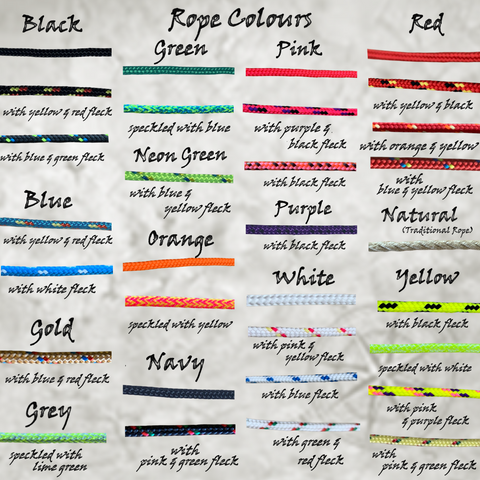 Rope Colours
Black
with yellow & red fleck
with blue & green fleck
Blue
with yellow & red fleck
with white fleck
Gold
with blue & red fleck
Grey
speckled with
lime green
Green
speckled with blue
Neon Green
with blue &
yellow fleck
Orange
speckled with yellow
Navy
with
pink & green fleck
Pink
with purple &
black fleck
with black fleck
Purple
with black fleck
White
with pink &
yellow fleck
with blue fleck
with green &
red fleck
Red
with yellow & black
with orange & yellow
with
blue & yellow fleck
Natural
(Traditional Rope)
Yellow
with black fleck
speckled with white
with pink
& purple fleck
with
pink & green fleck